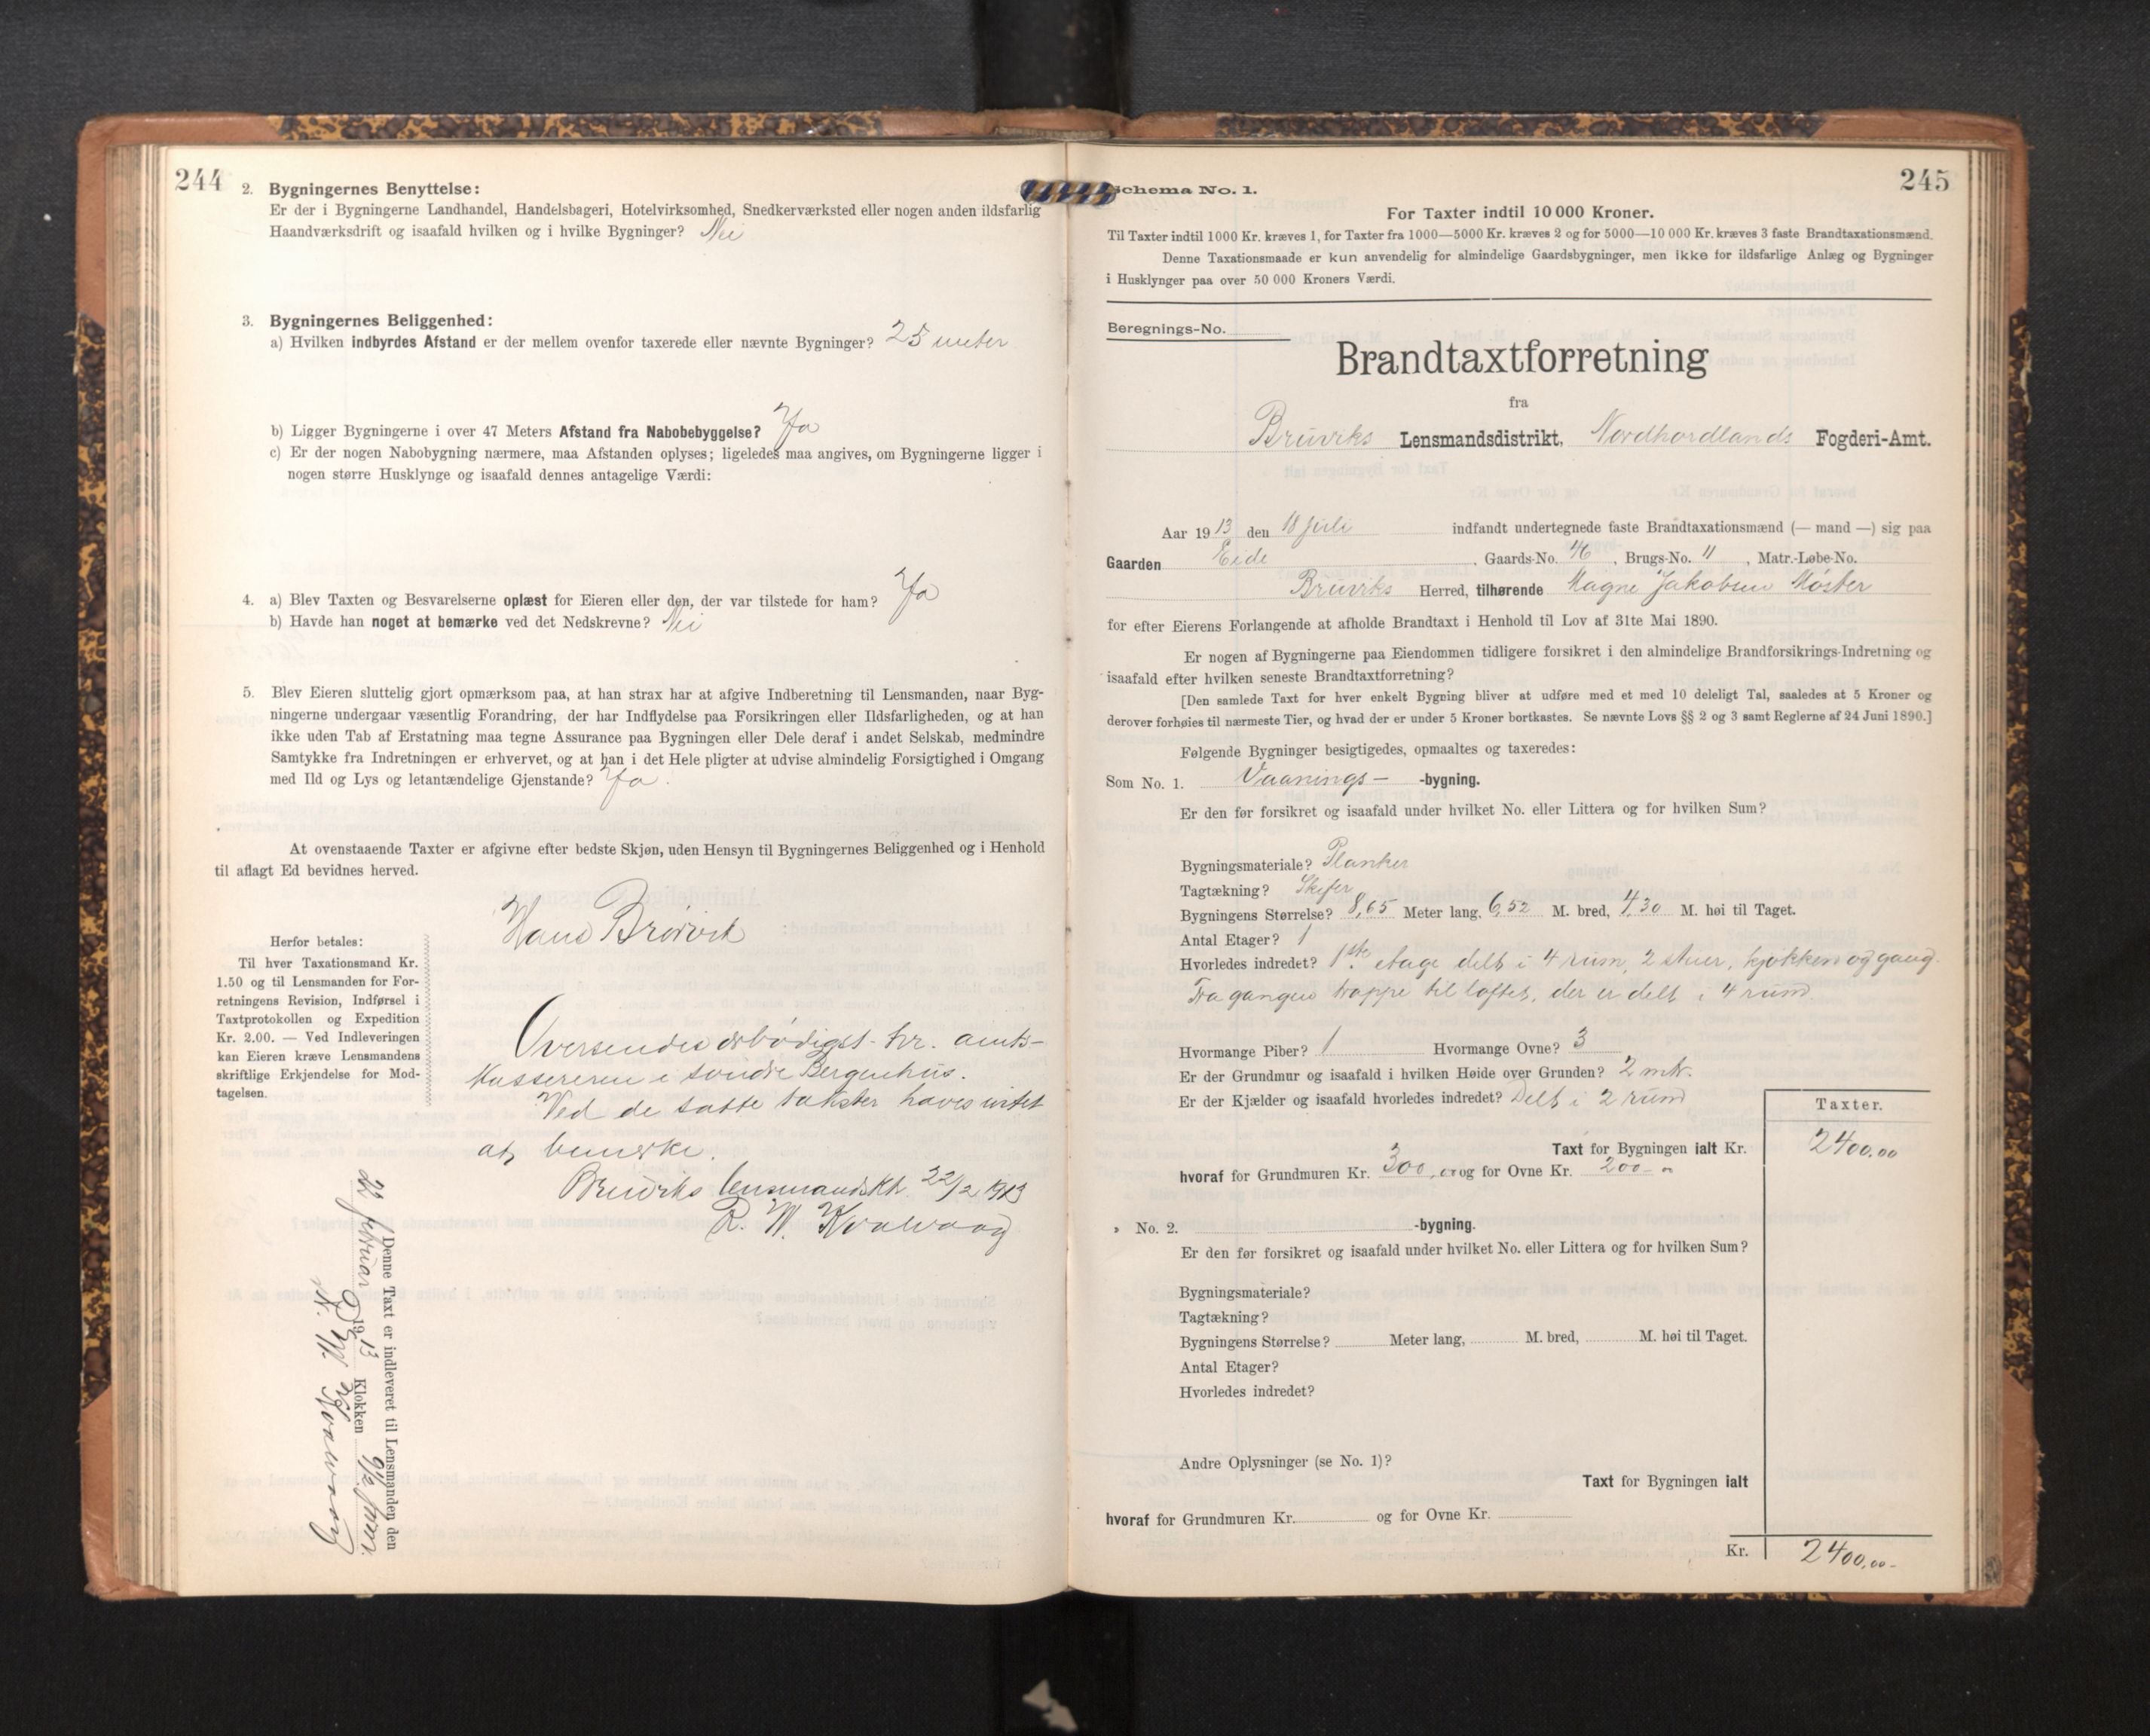 244
2. Bygningernes Benyttelse:
Er der i Bygningerne Landhandel, Handelsbageri, Hotelvirksomhed, Snedkerværksted eller nogen anden ildsfarlig
Haandværksdrift og isaafald hvilken og i hvilke Bygninger? Nei
3. Bygningernes Beliggenhed:
a) Hvilken indbyrdes Afstand er der mellem ovenfor taxerede eller nævnte Bygninger? 25 meter
b) Ligger Bygningerne i over 47 Meters Afstand fra Nabobebyggelse? Ja
c) Er der nogen Nabobygning nærmere, maa Afstanden oplyses; ligeledes maa angives, om Bygningerne ligger i
nogen større Husklynge og isaafald dennes antagelige Værdi:
4. a) Blev Taxten og Besvarelserne oplæst for Eieren eller den, der var tilstede for ham? Ja
b) Havde han noget at bemærke ved det Nedskrevne? Nei
5. Blev Eieren sluttelig gjort opmærksom paa, at han strax har at afgive Indberetning til Lensmanden, naar Byg-
ningerne undergaar væsentlig Forandring, der har Indflydelse paa Forsikringen eller Ildsfarligheden, og at han
ikke uden Tab af Erstatning maa tegne Assurance paa Bygningen eller Dele deraf i andet Selskab, medmindre
Samtykke fra Indretningen er erhvervet, og at han i det Hele pligter at udvise almindelig Forsigtighed i Omgang
med Ild og Lys og letantændelige Gjenstande? Ja.
At ovenstaaende Taxter er afgivne efter bedste Skjøn, uden Hensyn til Bygningernes Beliggenhed og i Henhold
til aflagt Ed bevidnes herved.
Hans
Herfor betales:
Til hver Taxationsmand Kr.
1.50 og til Lensmanden for For-
retningens Revision, Indførsel i
Taxtprotokollen og Expedition
Kr. 2.00. — Ved Indleveringen
kan Eieren kræve Lensmandens
skriftlige Erkjendelse for Mod-
tagelsen.
Oversendes ærbødigst hr. amts-
kassereren i søndre Bergenhus.
Ved de satte takster haves intet
at bemerke.
Bruviks lensmandskt. 22/2 1913
R. W. Kvalvaag
Denne Taxt er indleveret til Lensmanden den
22 februar 1913 Klokken 9 1/2 form.
R. W. Kvalvaag
245
Schema No. 1.
For Taxter indtil 10 000 Kroner.
Til Taxter indtil 1000 Kr. kræves 1, for Taxter fra 1000—5000 Kr. kræves 2 og for 5000—10 000 Kr. kræves 3 faste Brandtaxationsmænd.
Denne Taxationsmaade er kun anvendelig for almindelige Gaardsbygninger, men ikke for ildsfarlige Anlæg og Bygninger
i Husklynger paa over 50 000 Kroners Værdi.
Beregnings-No.
Brandtaxtforretning
fra
Bruviks Lensmandsdistrikt, Nordhordlands Fogderi-Amt.
Aar 1913 den 18 Juli indfandt undertegnede faste Brandtaxationsmænd (— mand —) sig paa
Gaarden Eide, Gaards-No. 46, Brugs-No. 11, Matr.-Løbe-No.
Bruviks Herred, tilhørende Magne Jakobsen Moster
for efter Eierens Forlangende at afholde Brandtaxt i Henhold til Lov af 31te Mai 1890.
Er nogen af Bygningerne paa Eiendommen tidligere forsikret i den almindelige Brandforsikrings-Indretning og
isaafald efter hvilken seneste Brandtaxtforretning?
[Den samlede Taxt for hver enkelt Bygning bliver at udføre med et med 10 deleligt Tal, saaledes at 5 Kroner og
derover forhøies til nærmeste Tier, og hvad der er under 5 Kroner bortkastes. Se nævnte Lovs §§ 2 og 3 samt Reglerne af 24 Juni 1890.]
Følgende Bygninger besigtigedes, opmaaltes og taxeredes:
Som No. 1. Vaanings- -bygning.
Er den før forsikret og isaafald under hvilket No. eller Littera og for hvilken Sum?
Bygningsmateriale? Planker
Tagtækning? Skifer
Bygningens Størrelse? 8,65 Meter lang, 6,52 M. bred, 4,30 M. høi til Taget.
Antal Etager? 1
Hvorledes indredet? 1ste etage delt i 4 rum, 2 stuer, kjøkken og gang.
Fra gangen trappe til loftet, der er delt i 4 rum.
Hvormange Piber? 1 Hvormange Ovne? 3
Er der Grundmur og isaafald i hvilken Høide over Grunden? 2 mtr.
Er der Kjælder og isaafald hvorledes indredet? Delt i 2 rum
Taxter.
Taxt for Bygningen ialt Kr. 2400.00
hvoraf for Grundmuren Kr. 300,00 og for Ovne Kr. 200-00
» No. 2. -bygning.
Er den før forsikret og isaafald under hvilket No. eller Littera og for hvilken Sum?
Bygningsmateriale?
Tagtækning?
Bygningens Størrelse? Meter lang, M. bred, M. høi til Taget.
Antal Etager?
Hvorledes indredet?
Andre Oplysninger (se No. 1)?
Taxt for Bygningen ialt
hvoraf for Grundmuren Kr. og for Ovne Kr.
Kr. 2400,00-